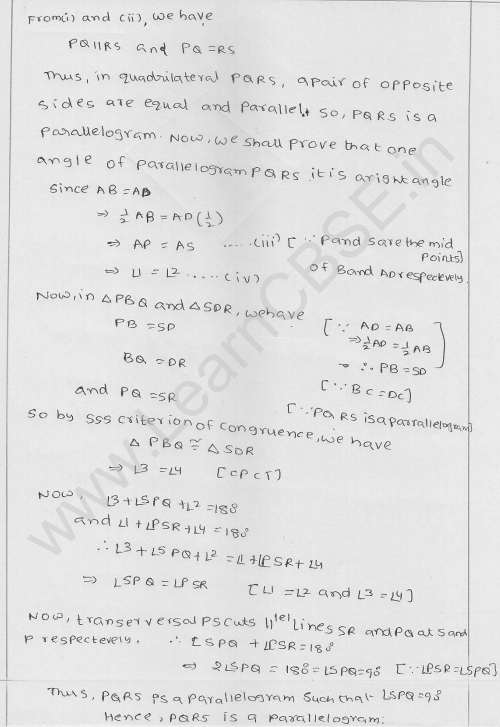 From(i) and (ii), we have
PQ||RS and PQ=RS
Thus, in quadrilateral PQRS, a pair of opposite
sides are equal and parallel. So, PQRS is a
parallelogram. Now, we shall prove that one
angle of parallelogram PQRS it is a right angle
Since AB = AD
⇒ 1/2 AB = AD (1/2)
⇒ AP = AS .....(iii) [∵ P and S are the mid points]
⇒ ∠1 = ∠2 .....(iv) of B and AD respectevely.
Now, in △PBQ and △SDR, we have
PB = SD [∵ AD = AB
⇒ 1/2 AD = 1/2 AB
BQ = DR → ∴ PB = SD]
[∵ BC = DC]
and PQ = SR [∵ PQRS is a parralelogram]
So by SSS criterion of congruence, we have
△ PBQ ≅ △ SDR
⇒ ∠3 = ∠4 [CPCT]
Now, ∠3 + ∠SPQ + ∠2 = 180
and ∠1 + ∠PSR + ∠4 = 180
∴ ∠3 + ∠SPQ + ∠2 = ∠1 + ∠PSR + ∠4
⇒ ∠SPQ = ∠PSR [∠1 = ∠2 and ∠3 = ∠4]
Now, transerversal PS cuts ||lel lines SR and PQ at S and
P respectevely. ∴ ∠SPQ + ∠PSR = 180
⇒ 2∠SPQ = 180 = ∠SPQ = 90 [∵ ∠PSR = ∠SPQ]
Thus, PQRS is a parallelogram such that ∠SPQ = 90
Hence, PQRS is a parallelogram.
www.LearnCBSE.in